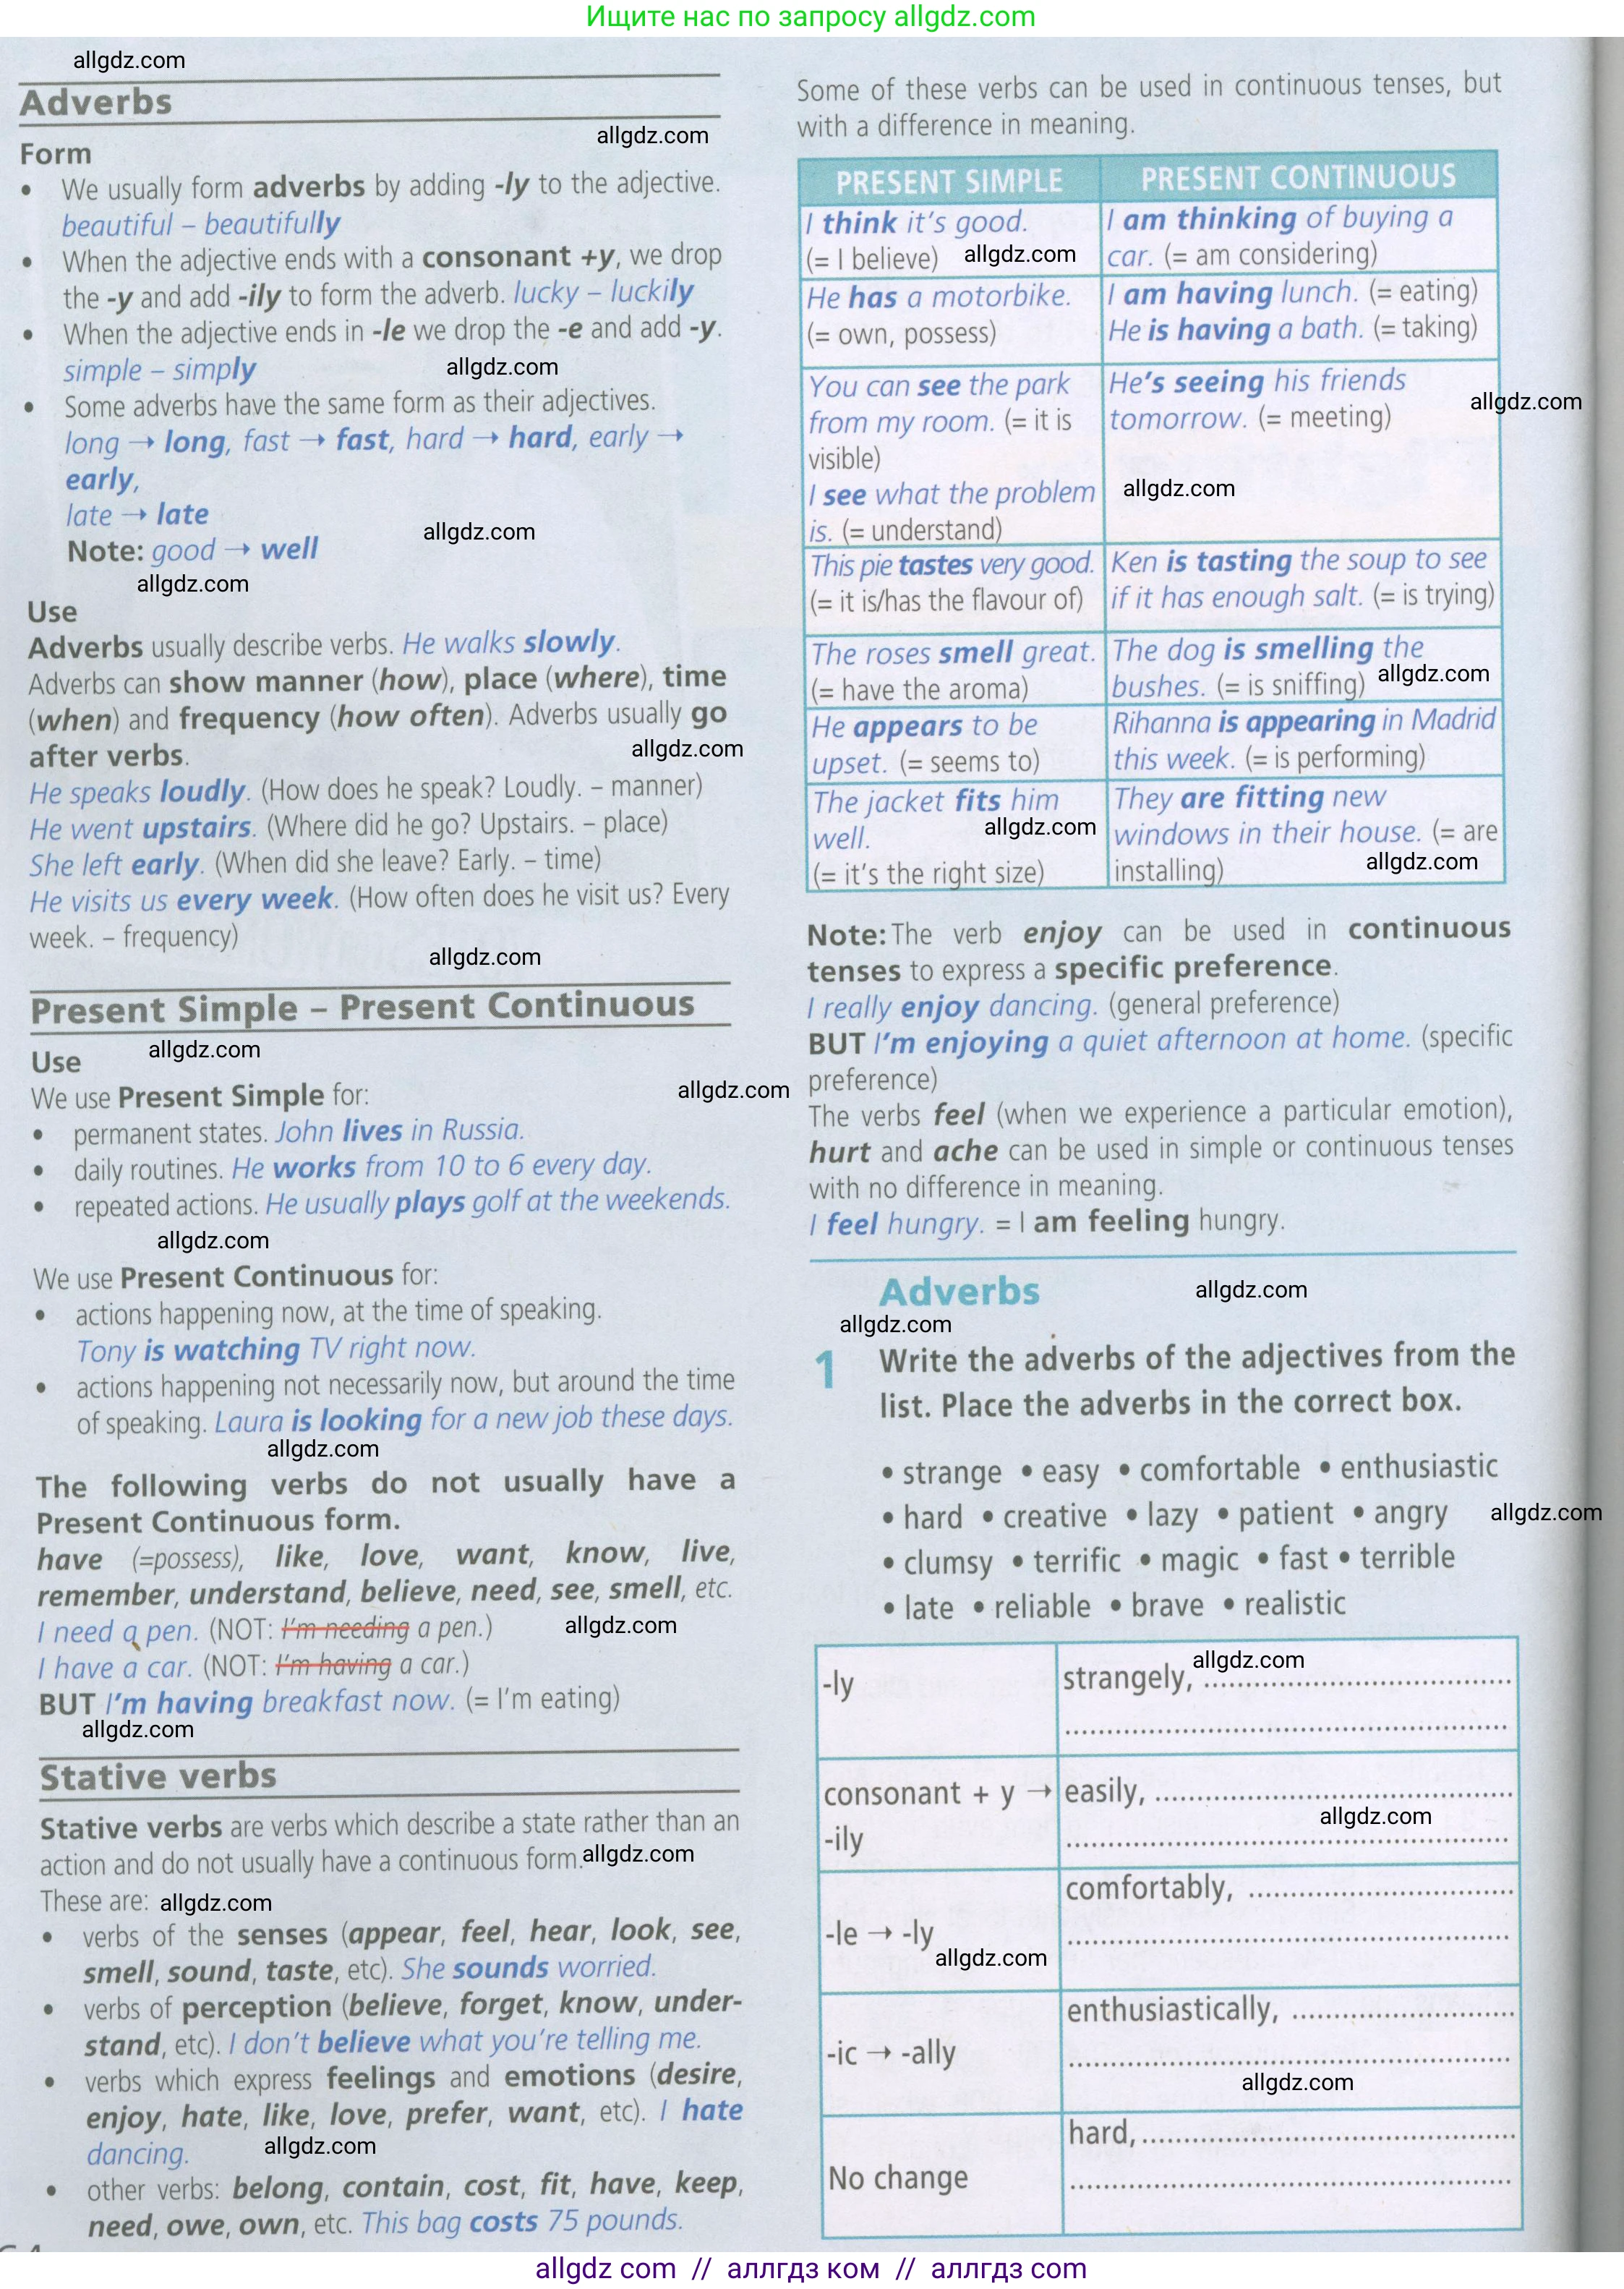 Ищите нас по запросу allgdz.com
allgdz.com
Adverbs
allgdz.com
Form
• We usually form adverbs by adding -ly to the adjective.
beautiful – beautifully
• When the adjective ends with a consonant +y, we drop
the -y and add -ily to form the adverb. lucky – luckily
• When the adjective ends in -le we drop the -e and add -y.
simple – simply
allgdz.com
• Some adverbs have the same form as their adjectives.
long → long, fast → fast, hard → hard, early →
early,
late → late
allgdz.com
Note: good → well
allgdz.com
Use
Adverbs usually describe verbs. He walks slowly.
Adverbs can show manner (how), place (where), time
(when) and frequency (how often). Adverbs usually go
after verbs.
allgdz.com
He speaks loudly. (How does he speak? Loudly. – manner)
He went upstairs. (Where did he go? Upstairs. – place)
She left early. (When did she leave? Early. – time)
He visits us every week. (How often does he visit us? Every
week. – frequency)
allgdz.com
Present Simple – Present Continuous
Use
allgdz.com
We use Present Simple for:
allgdz.com
• permanent states. John lives in Russia.
• daily routines. He works from 10 to 6 every day.
• repeated actions. He usually plays golf at the weekends.
allgdz.com
We use Present Continuous for:
• actions happening now, at the time of speaking.
Tony is watching TV right now.
• actions happening not necessarily now, but around the time
of speaking. Laura is looking for a new job these days.
allgdz.com
The following verbs do not usually have a
Present Continuous form.
have (=possess), like, love, want, know, live,
remember, understand, believe, need, see, smell, etc.
I need a pen. (NOT: I'm needing a pen.)
allgdz.com
I have a car. (NOT: I'm having a car.)
BUT I'm having breakfast now. (= I'm eating)
allgdz.com
Stative verbs
Stative verbs are verbs which describe a state rather than an
action and do not usually have a continuous form.
allgdz.com
These are:
allgdz.com
• verbs of the senses (appear, feel, hear, look, see,
smell, sound, taste, etc). She sounds worried.
• verbs of perception (believe, forget, know, under-
stand, etc). I don't believe what you're telling me.
• verbs which express feelings and emotions (desire,
enjoy, hate, like, love, prefer, want, etc). I hate
dancing.
allgdz.com
• other verbs: belong, contain, cost, fit, have, keep,
need, owe, own, etc. This bag costs 75 pounds.
Some of these verbs can be used in continuous tenses, but
with a difference in meaning.
PRESENT SIMPLE
PRESENT CONTINUOUS
I think it's good.
(= I believe)
allgdz.com
I am thinking of buying a
car. (= am considering)
He has a motorbike.
(= own, possess)
I am having lunch. (= eating)
He is having a bath. (= taking)
You can see the park
from my room. (= it is
visible)
I see what the problem
is. (= understand)
He's seeing his friends
tomorrow. (= meeting)
allgdz.com
allgdz.com
This pie tastes very good.
(= it is/has the flavour of)
Ken is tasting the soup to see
if it has enough salt. (= is trying)
The roses smell great.
(= have the aroma)
The dog is smelling the
bushes. (= is sniffing)
allgdz.com
He appears to be
upset. (= seems to)
Rihanna is appearing in Madrid
this week. (= is performing)
The jacket fits him
well.
allgdz.com
(= it's the right size)
They are fitting new
windows in their house. (= are
installing)
allgdz.com
Note: The verb enjoy can be used in continuous
tenses to express a specific preference.
I really enjoy dancing. (general preference)
BUT I'm enjoying a quiet afternoon at home. (specific
preference)
The verbs feel (when we experience a particular emotion),
hurt and ache can be used in simple or continuous tenses
with no difference in meaning.
I feel hungry. = I am feeling hungry.
Adverbs
allgdz.com
allgdz.com
1 Write the adverbs of the adjectives from the
list. Place the adverbs in the correct box.
• strange • easy • comfortable • enthusiastic
• hard • creative • lazy • patient • angry
allgdz.com
• clumsy • terrific • magic • fast • terrible
• late • reliable • brave • realistic
-ly
strangely, ........................................
allgdz.com
........................................
consonant + y →
-ily
easily, ........................................
allgdz.com
........................................
-le → -ly
allgdz.com
comfortably, ........................................
........................................
-ic → -ally
enthusiastically, ........................................
........................................
allgdz.com
No change
hard, ........................................
........................................
allgdz com // аллгдз ком // аллгдз com